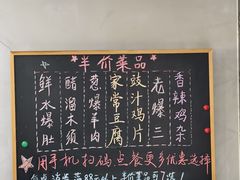 ★半价菜品★
鲜水爆肚
醋溜木须
葱爆羊肉
家常豆腐
豉汁鸡片
老爆三
香辣鸡杂
用手机扫码点餐更多优惠选择